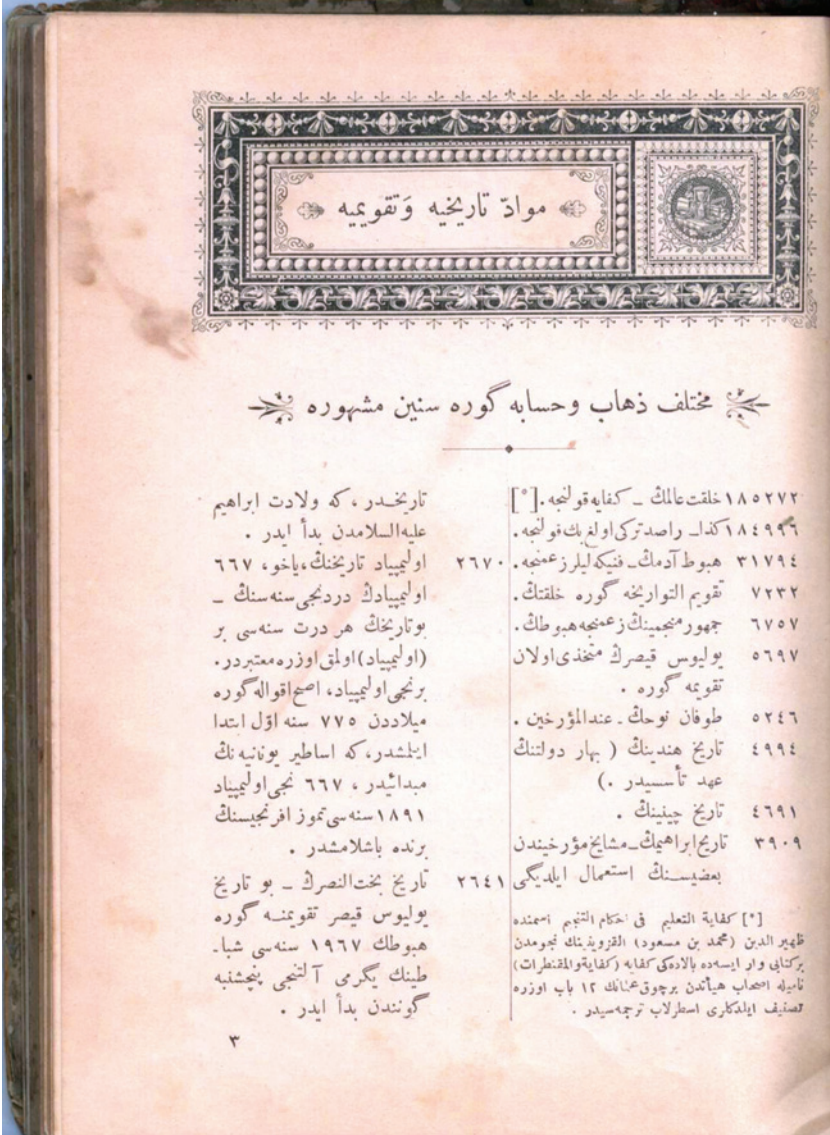 موادّ تاریخیه وَتقویمیه
مختلف ذهاب وحسابه گوره سنین مشهوره
١٨٥٢٧٢ خلقت عالمڭ ــ کفایه قولنجه . [*]
١٨٤٩٩٦ کذا ــ راصد ترکی اولغ بك قولنجه .
٣١٧٩٤ هبوط آدمڭ ــ فنیکه لیلر زعمنجه .
٧٢٣٢ تقویم التواریخه گوره خلقتڭ .
٦٧٥٧ جمهور منجمینڭ زعمنجه هبوطڭ .
٥٦٩٧ یولیوس قیصرڭ متخذی اولان
تقویمه گوره .
٥٢٤٦ طوفان نوحڭ ـ عندالمؤرخین .
٤٩٩٤ تاریخ هندینڭ ( بهار دولتنڭ
عهد تأسسیدر . )
٤٦٩١ تاریخ چینینڭ .
٣٩٠٩ تاریخ ابراهیمڭ ــ مشایخ مؤرخیندن
بعضیسنڭ استعمال ایلدیگی
[*] کفایة التعلیم فی احکام التنجیم اسمنده
ظهیر الدین (محمد بن مسعود) القزوینینڭ نجومدن
برکتابی وار ایسه ده بالاده کی کفایه (کفایة والمقنطرات)
نامیله اصحاب هیأتدن برچوق عمانڭ ١٢ باب اوزره
تصنیف ایلدکلری اسطرلاب ترجمه سیدر .
تاریخدر ، که ولادت ابراهیم
علیه السلامدن بدأ ایدر .
٢٦٧٠ اولیمپیاد تاریخنڭ ، یاخو ، ٦٦٧
اولیمپیادڭ دردنجی سنه سنڭ ــ
بوتاریخڭ هر درت سنه سی بر
(اولیمپیاد) اولمق اوزره معتبردر .
برنجی اولیمپیاد ، اصح اقواله گوره
میلاددن ٧٧٥ سنه اوّل ابتدا
ایلمشدر ، که اساطیر یونانیه نڭ
مبدائیدر ، ٦٦٧ نجی اولیمپیاد
١٨٩١ سنه سی تموز افرنجیسنڭ
برنده باشلامشدر .
٢٦٤١ تاریخ بخت النصرڭ ــ بو تاریخ
یولیوس قیصر تقویمنه گوره
هبوطڭ ١٩٦٧ سنه سی شبا ـ
طینڭ یگرمی آلتنجی پنچشنبه
گونندن بدأ ایدر .
٣